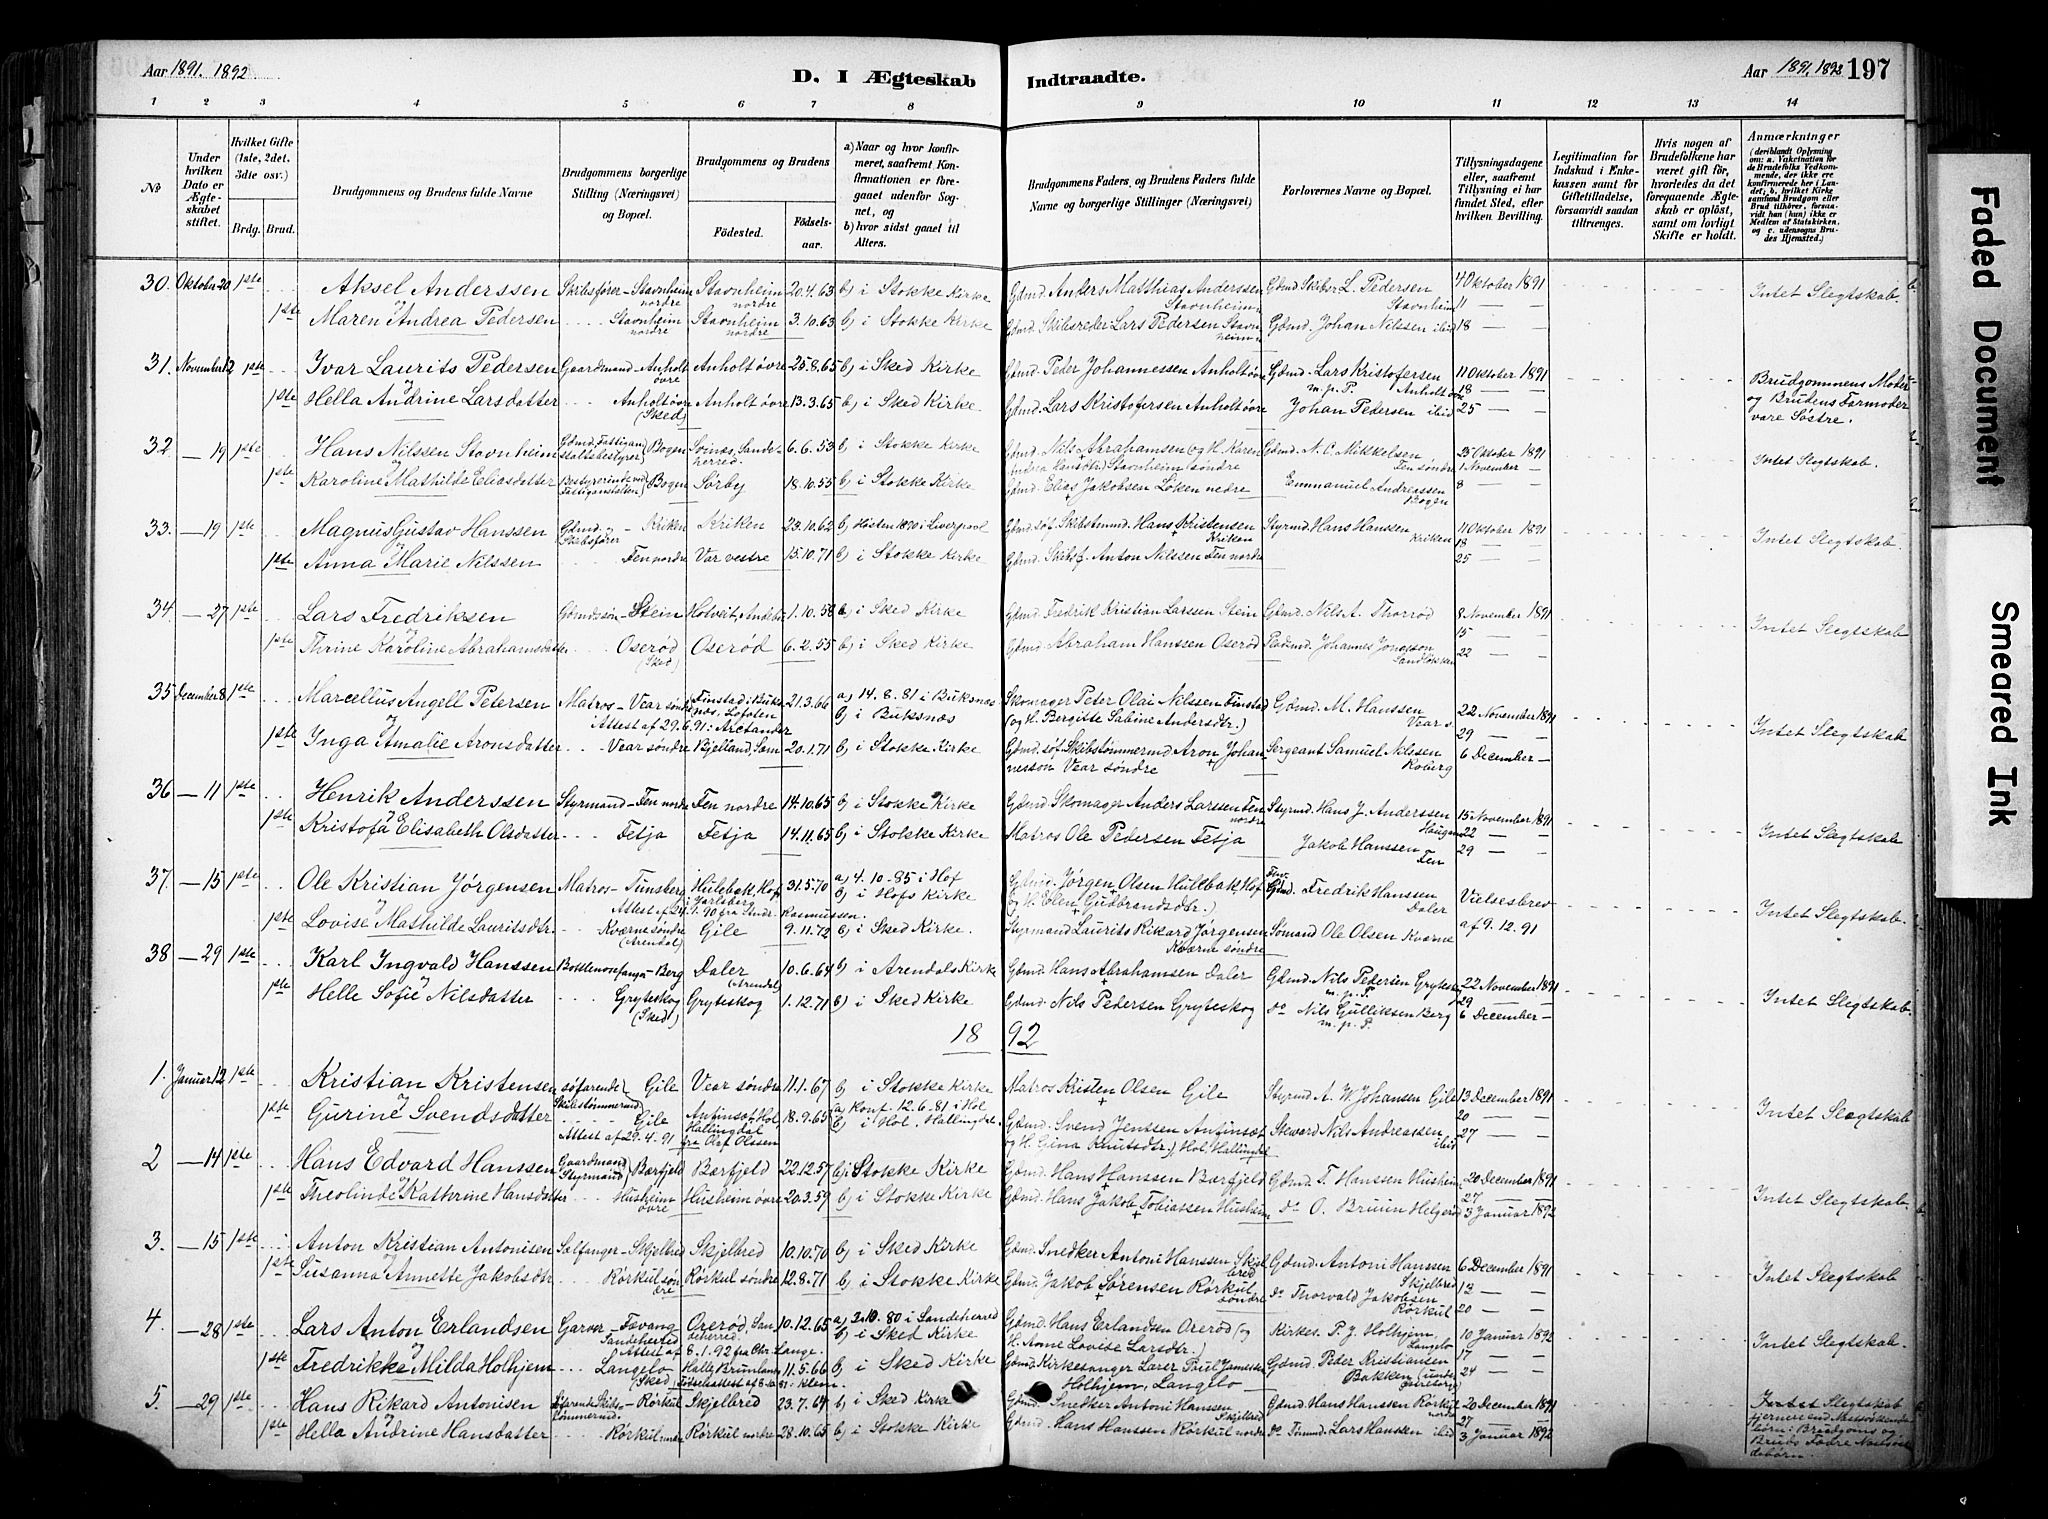 Aar 1891. 1892
D. I Ægteskab Indtraadte.
Aar 1891, 1892 197
1 2 3 4 5 6 7 8 9 10 11 12 13 14
No
Under hvilken Dato er Ægteskabet stiftet.
Hvilket Gifte (1ste, 2det. 3die osv.)
Brdg. Brud.
Brudgommens og Brudens fulde Navne
Brudgommens borgerlige Stilling (Næringsvei) og Bopæl.
Brudgommens og Brudens
Fødested. Fødselsaar.
a) Naar og hvor konfirmeret, saafremt Konfirmationen er foregaaet udenfor Sognet, og b) hvor sidst gaaet til Alters.
Brudgommens Faders og Brudens Faders fulde Navne og borgerlige Stillinger (Næringsvei)
Forlovernes Navne og Bopæl.
Tillysningsdagene eller, saafremt Tillysning ei har fundet Sted, efter hvilken Bevilling.
Legitimation for Indskud i Enkekassen samt for Giftetilladelse, forsaavidt saadan tiltrænges.
Hvis nogen af Brudefolkene har været gift før, hvorledes da det foregaaende Ægteskab er opløst, samt om lovligt Skifte er holdt.
Anmærkninger (deriblandt Oplysning om: a. Vakcination for de Brudefolks Vedkommende, der ikke ere konfirmerede her i Landet; b. hvilket Kirkesamfund Brudgom eller Brud tilhører, forsaavidt han (hun) ikke er Medlem af Statskirken, og c. udensogns Brudes Hjemsted.)
30. Oktober 20 1ste Aksel Anderssen Skibsfører - Stavnheim nordre Stavnheim nordre 20.4.63 b) i Stokke Kirke Gdmd. Anders Matthias Anderssen Stavnheim Gdmd Skibsr L. Pedersen Stavnheim 4 Oktober 1891 Intet Slegtskab.
og 11 —
1ste Maren Andrea Pedersen Stavnheim nordre Stavnheim nordre 3.10.63 b) i Stokke Kirke Gdmd. Skibsreder Lars Pedersen Stavnheim Gdmd. Johan Nilssen ibid 18 —
31. November 12 1ste Ivar Laurits Pedersen Gaardmand - Anholt övre Anholt övre 25.8.65 b) i Sked Kirke Gdmd. Peter Johannessen Anholt övre Gdmd. Lars Kristofersen m.p.P. Anholt övre 11 Oktober 1891 Brudgommens Moder
og 18 — og Brudens Farmoder
1ste Hella Andrine Larsdatter Anholt övre (Sked) Anholt övre 13.3.65 b) i Sked Kirke Gdmd. Lars Kristofersen Anholt övre Johan Pedersen ibid 25 — vare Søstre.
32. — 19 1ste Hans Nilssen Stavnheim Gdmd. Fattiganstaltsbestyrer Bogen Sandeherred 6.6.53 b) i Stokke Kirke Gdmd. Nils Abrahamsen (og H. Karen Gdmd. N. C. Mikkelsen Fen söndre 25 Oktober 1891
og Stavnheim söndre 1 November — Intet Slegtskab.
1ste Karoline Mathilde Eliasdatter Bestyrerinde ved Fattiganstalten Bogen Sörby 18.10.55 b) i Stokke Kirke Gdmd. Elias Jakobsen Löken nedre Emmanuel Andreassen Bogen 8 —
33. — 19 1ste Magnus Gustav Hanssen Gdmd. Skibsfører - Kriken Kriken 23.10.62 b) Hösten 1890 i Liverpool Gdmd. söf. Skibstmmd. Hans Kristensen Kriken Styrmd. Hans Hanssen Kriken 11 Oktober 1891 Intet Slegtskab.
og 18 —
1ste Anna Marie Nilssen Fen nordre Var vestre 15.10.71 b) i Stokke Kirke Gdmd. Skibsf. Anton Nilssen Fen nordre 25 —
34. — 27 1ste Lars Fredriksen Gdmdssön - Stein Holveit, Andebu 1.10.58 b) i Sked Kirke Gdmd. Fredrik Kristian Larssen Stein Gdmd. Nils A. Thorröd 8 November 1891 Intet Slegtskab
og 15 —
1ste Thrine Karoline Abrahamsdatter Oseröd (Sked) Oseröd 6.2.55 b) i Sked Kirke Gdmd. Abraham Hanssen Oseröd Pladsmd. Johannes Jonassen Sandlökken 22 —
35 December 8 1ste Marcellus Angell Petersen Matros - Vear söndre Finstad, Buksnæs, Lofoten 21.3.66 a) 14.8.81 i Buksnæs b) i Buksnæs Skomager Peter Olai Nilssen Finstad (og H. Bergitte Sabine Andersdtr.) Gdmd. M. Hanssen Vear s. 22 November 1891 Intet Slegtskab
og Attest af 29.6.91: Arctander 29 —
1ste Inga Amalie Aronsdatter Vear söndre Bjelland, Sem 20.1.71 b) i Stokke Kirke Gdmd. söf. Skibstömmermd Aron Johannessen Vear söndre Sergeant Samuel Nilssen Roberg 6 December —
36 — 11 1ste Henrik Anderssen Styrmand - Fen nordre Fen nordre 14.10.65 b) i Stokke Kirke Gdmd Skomager Anders Larssen Fen nordre Styrmd. Hans J. Anderssen Haugen 15 November 1891 Intet Slegtskab
og 22 —
1ste Kristofa Elisabeth Olsdatter Fetja Fetja 14.11.65 b) i Stokke Kirke Matros Ole Pedersen Fetja Jakob Hanssen Fen 29 —
37. — 15 1ste Ole Kristian Jörgensen Matros - Tunsberg Hulebak, Hof i Jarlsberg 31.5.70 a) 4.10.85 i Hof b) i Hofs Kirke Gdmd. Jörgen Olsen Hulebak, Hof og H. Elen Gudbrandsdtr.) Gdmd. Fredrik Hanssen Daler Vielsesbrev
og Rasmussen. af 9.12.91 Intet Slegtskab.
1ste Lovise Mathilde Lauritsdtr. Kværne söndre (Arendal) Gile 9.11.72 b) i Sked Kirke. Styrmand Laurits Rikard Jörgensen Kværne söndre Sömand Ole Olsen Kværne
38 — 29 1ste Karl Ingvald Hanssen Bottlenosefanger - Berg Daler (Arendal) 10.6.64 b) i Arendals Kirke Gdmd. Hans Abrahamsen Daler Gdmd. Nils Pedersen Gryteskog m.p.P. 22 November 1891 Intet Slegtskab.
og 29 —
1ste Helle Sofie Nilsdatter Gryteskog (Sked) Gryteskog 1.12.71 b) i Sked Kirke Gdmd. Nils Pedersen Gryteskog do Nils Gulliksen Berg m.p.P. 6 December —
18 92
1. Januar 12 1ste Kristian Kristensen söfarende Skibstømmermd Gile Vear söndre 11.1.67 b) i Stokke Kirke Matros Kristen Olsen Gile Styrmd. A. W. Johansen Gile 13 December 1891 Intet Slegtskab
og a) Konf. 12.6.81 i Hol 20 —
1ste Gurine Svendsdatter Gile Antinsæt, Hol, Hallingdal 18.9.65 b) i Hol, Hallingdal Gdmd. Svend Jenssen Antinsæt og H. Gina Knutsdtr.) Hol, Hallingdal Steward Nils Andreassen ibid 27 —
Attest af 29.4.91 fra Orf. Olsen
2 — 14 1ste Hans Edvard Hanssen Gaardmand Styrmand Bærfjeld Bærfjeld 22.12.57 b) i Stokke Kirke Gdmd. Hans Hanssen Bærfjeld Gdmd. T. Hanssen Husheim 20 December 1891 Intet Slegtskab.
og 27 —
1ste Theolinde Kathrine Hansdatter Husheim övre Husheim övre 20.3.59 b) i Stokke Kirke Gdmd. Hans Jakob Tobiassen Husheim do O. Bruun Helgeröd 3 Januar 1892
3. — 15 1ste Anton Kristian Antonisen Sælfanger - Skjelbred Skjelbred 10.10.70 b) i Sked Kirke Gdmd. Snedker Antoni Hanssen Skjelbred Gdmd. Antoni Hanssen Skjelbred 6 December 1891 Intet Slegtskab
og 13 —
1ste Susanna Annette Jakobsdtr. Rörkul söndre Rörkul söndre 12.8.71 b) i Stokke Kirke Gdmd. Jakob Sörensen Rörkul söndre do Thorvald Jakobsen Rörkul 20 —
4. — 28 1ste Lars Anton Erlandsen Garver - Fævang Sandeherred Oreröd, Sandeherred 10.12.65 a) 3.10.80 i Sandeherred b) i Sked Kirke Gdmd. Hans Erlandsen Oreröd (og H. Anne Lovise Larsdtr.) Kirkes. P. J. Holhjem, Langelo 10 Januar 1892 Intet Slegtskab.
og Attest af 8.1.92 fra Chr. Lange. 17 —
1ste Fredrikke Milda Holhjem Langelo (Sked) Halle, Brunlanæs 11.5.66 b) i Sked Kirke Gdmd Kirkesanger Lærer Poul Jamessen Holhjem, Langelo Gdmd. Peder Kristiansen Bakken 24 —
5. — 29 1ste Hans Rikard Antonisen Söfarende Skibstömmermd. - Rörkul Skjelbred 23.7.64 b) i Sked Kirke Gdmd. Snedker Antoni Hanssen Skjelbred Gdmd. Hans Hanssen Rörkul nordre 20 December 1891 Intet Slegtskab
og 27 — fjernere end Næssöskendebörn: Brudgoms og
1ste Hella Andrine Hansdatter Rörkul nordre Rörkul nordre 28.10.65 b) i Stokke Kirke Gdmd. Hans Hanssen Rörkul nordre do Tömmd. Lars Hanssen ibid 3 Januar 1892 Bruds Fædre Næssöskendebörn.
Faded Document
Smeared Ink